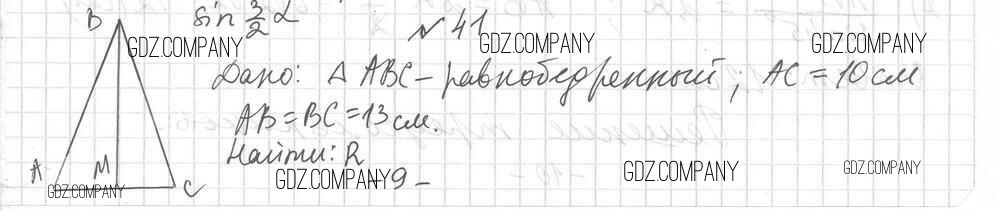 sin 3/2 α
B
№ 41
GDZ.COMPANY GDZ.COMPANY GDZ.COMPANY
Дано: Δ ABC – равнобедренный; AC = 10 см
AB = BC = 13 см.
Найти: R
A M C
GDZ.COMPANY GDZ.COMPANY GDZ.COMPANY GDZ.COMPANY
– 9 –